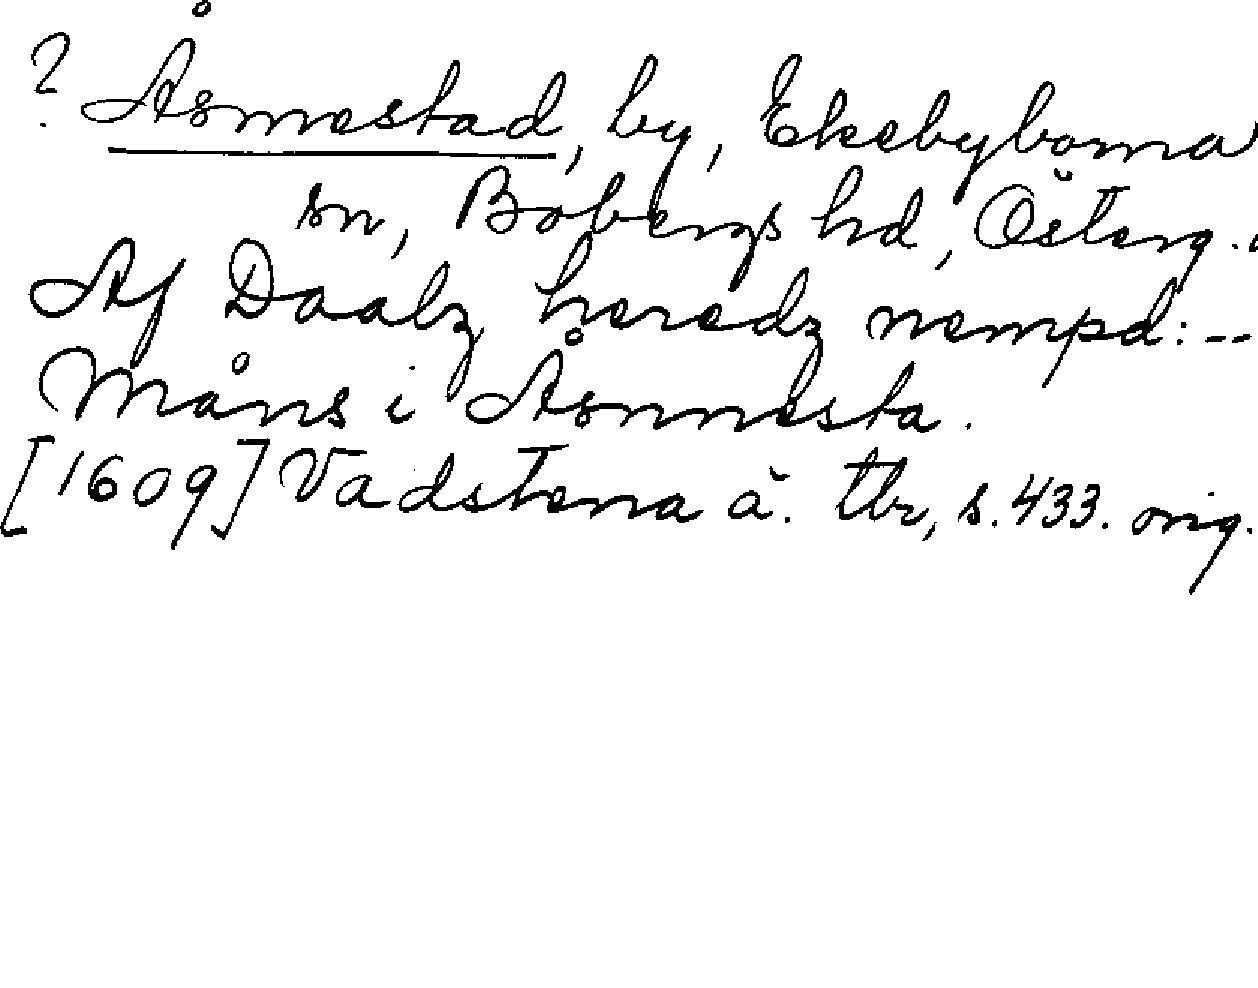 ? Åsmestad, by, Ekebyborna
sn, Bobergs hd, Österg.
Af Daalz heredz nempd: --
Måns i Åsmnesta.
[1609] Vadstena ä. tbr, s. 433. orig.